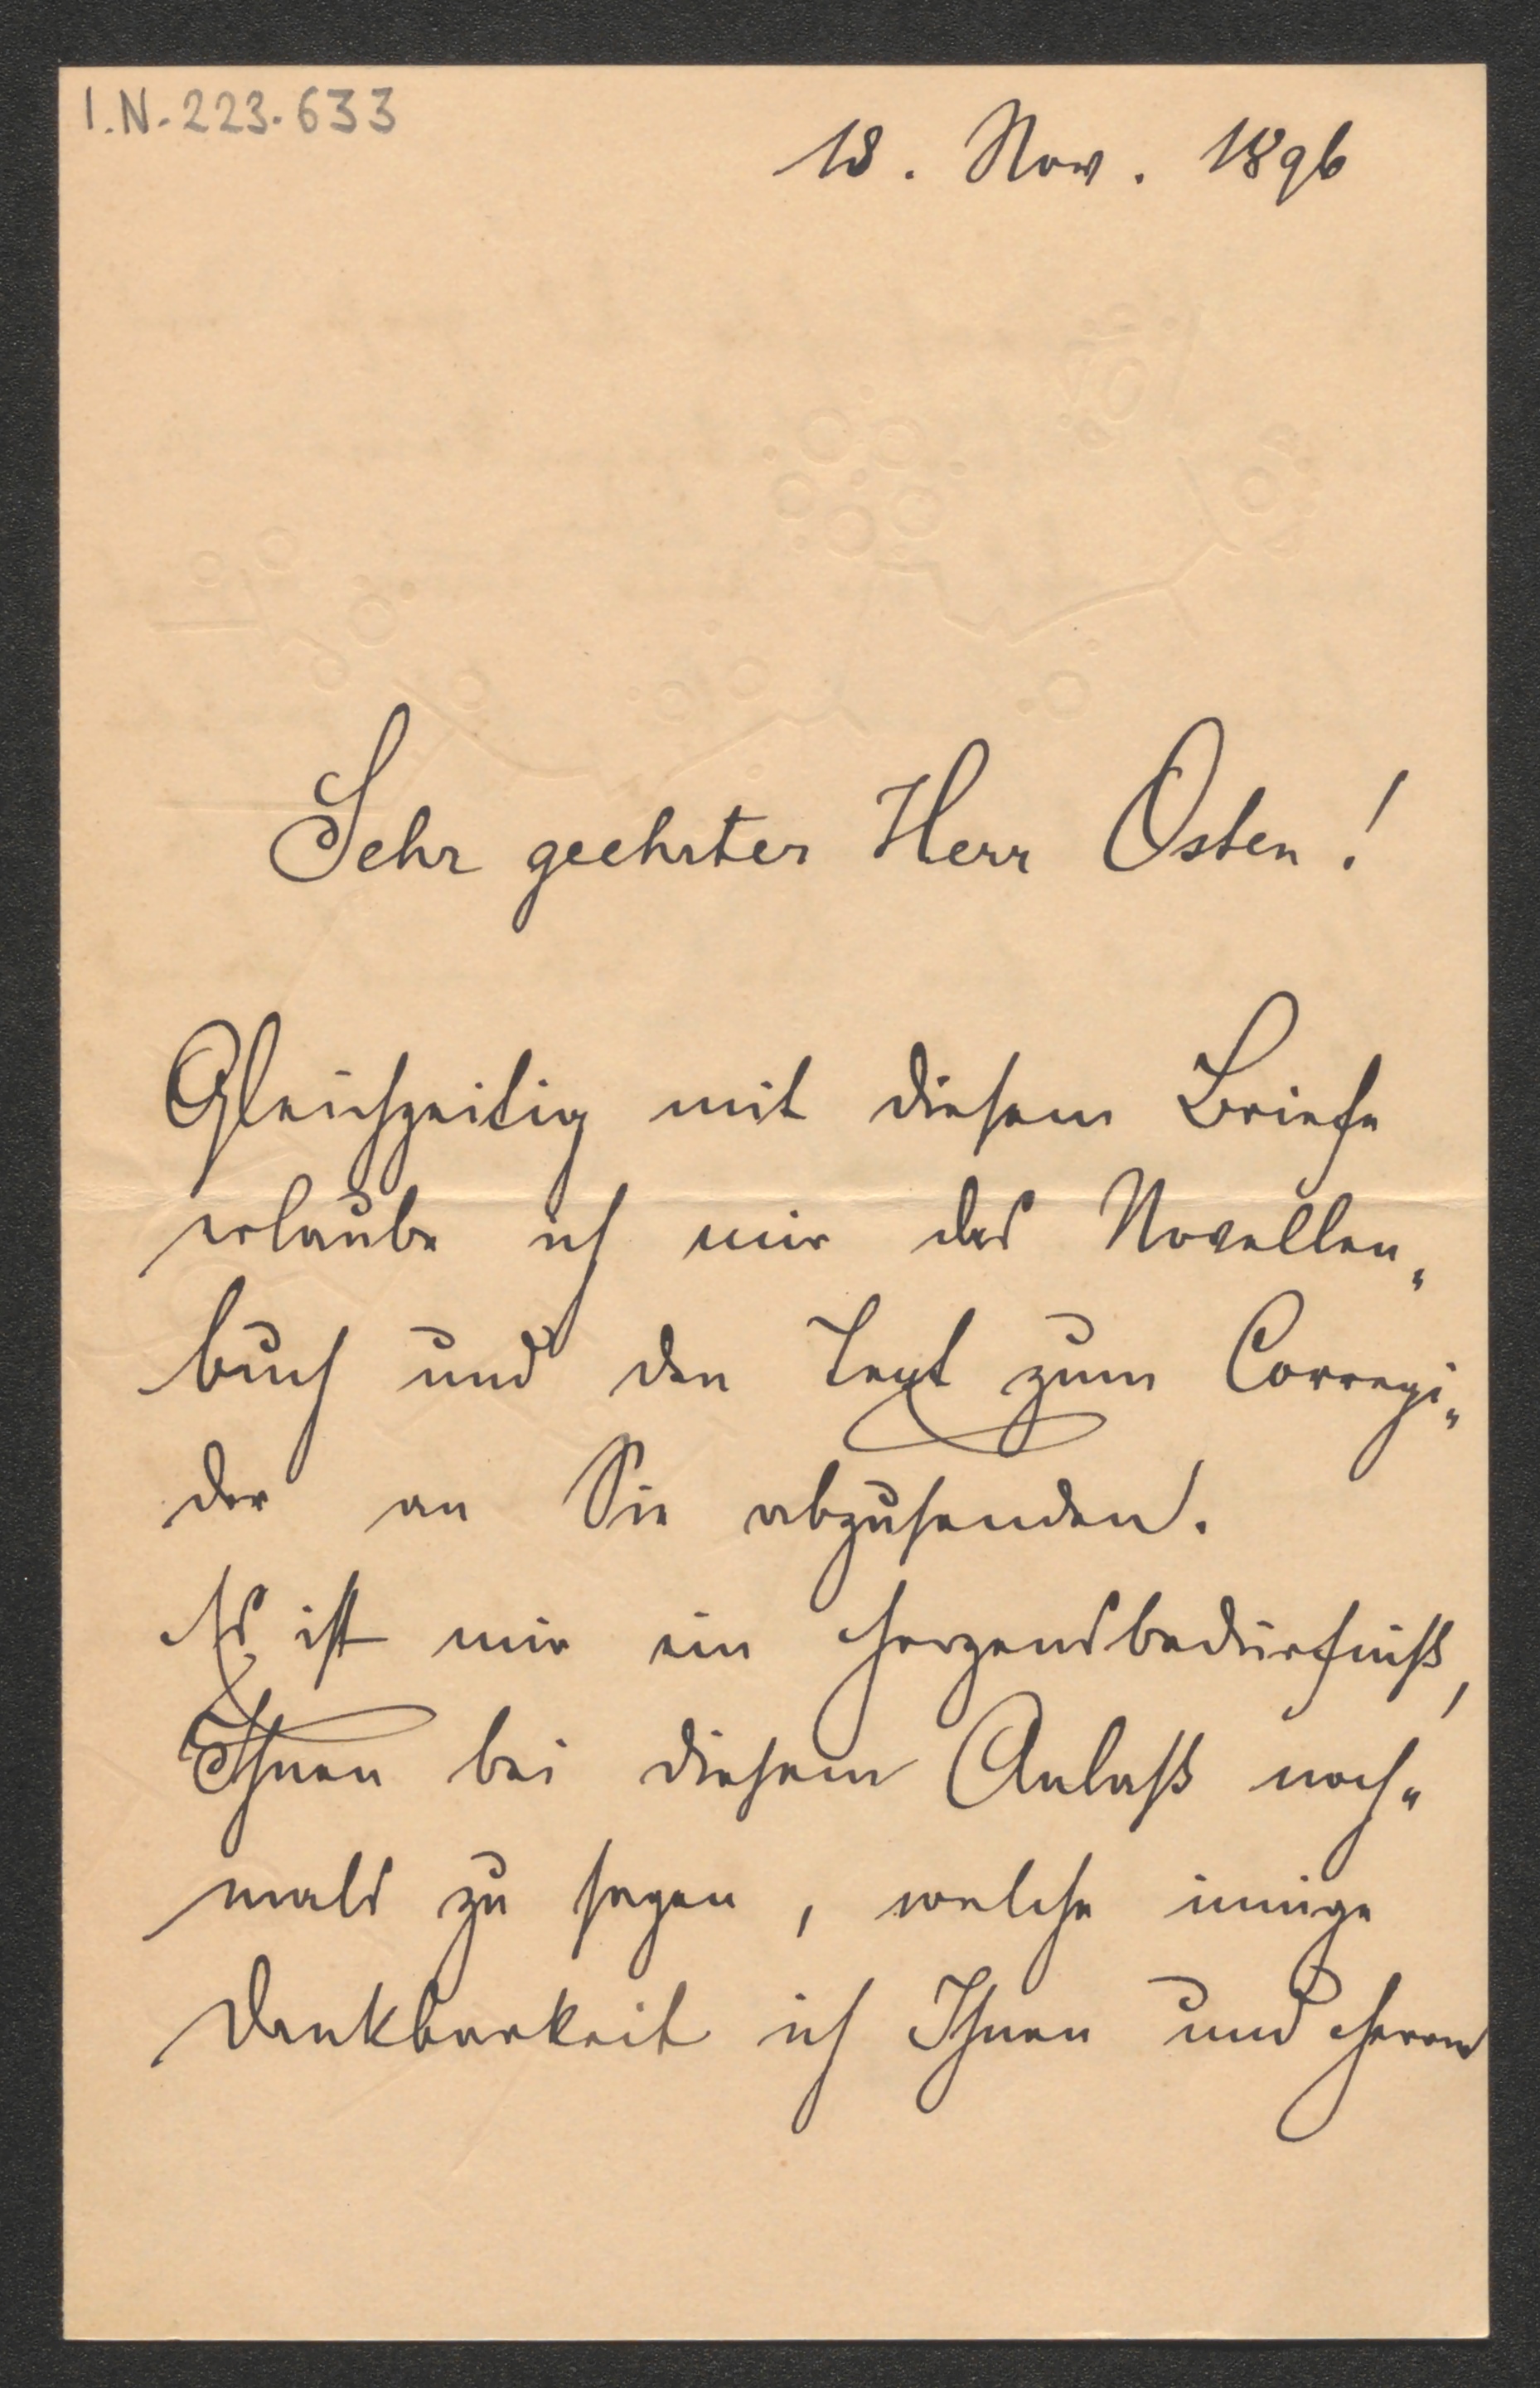 I.N. 223.633
18. Nov. 1896
Sehr geehrter Herr Osten!
Gleichzeitig mit diesem Briefe
erlaube ich mir das Novellen„
buch und den Text zum Corregi„
dor an Sie abzusenden.
Es ist mir ein Herzensbedürfniß,
Ihnen bei diesem Anlaß noch„
mals zu sagen, welche innige
Dankbarkeit ich Ihnen und Herrn